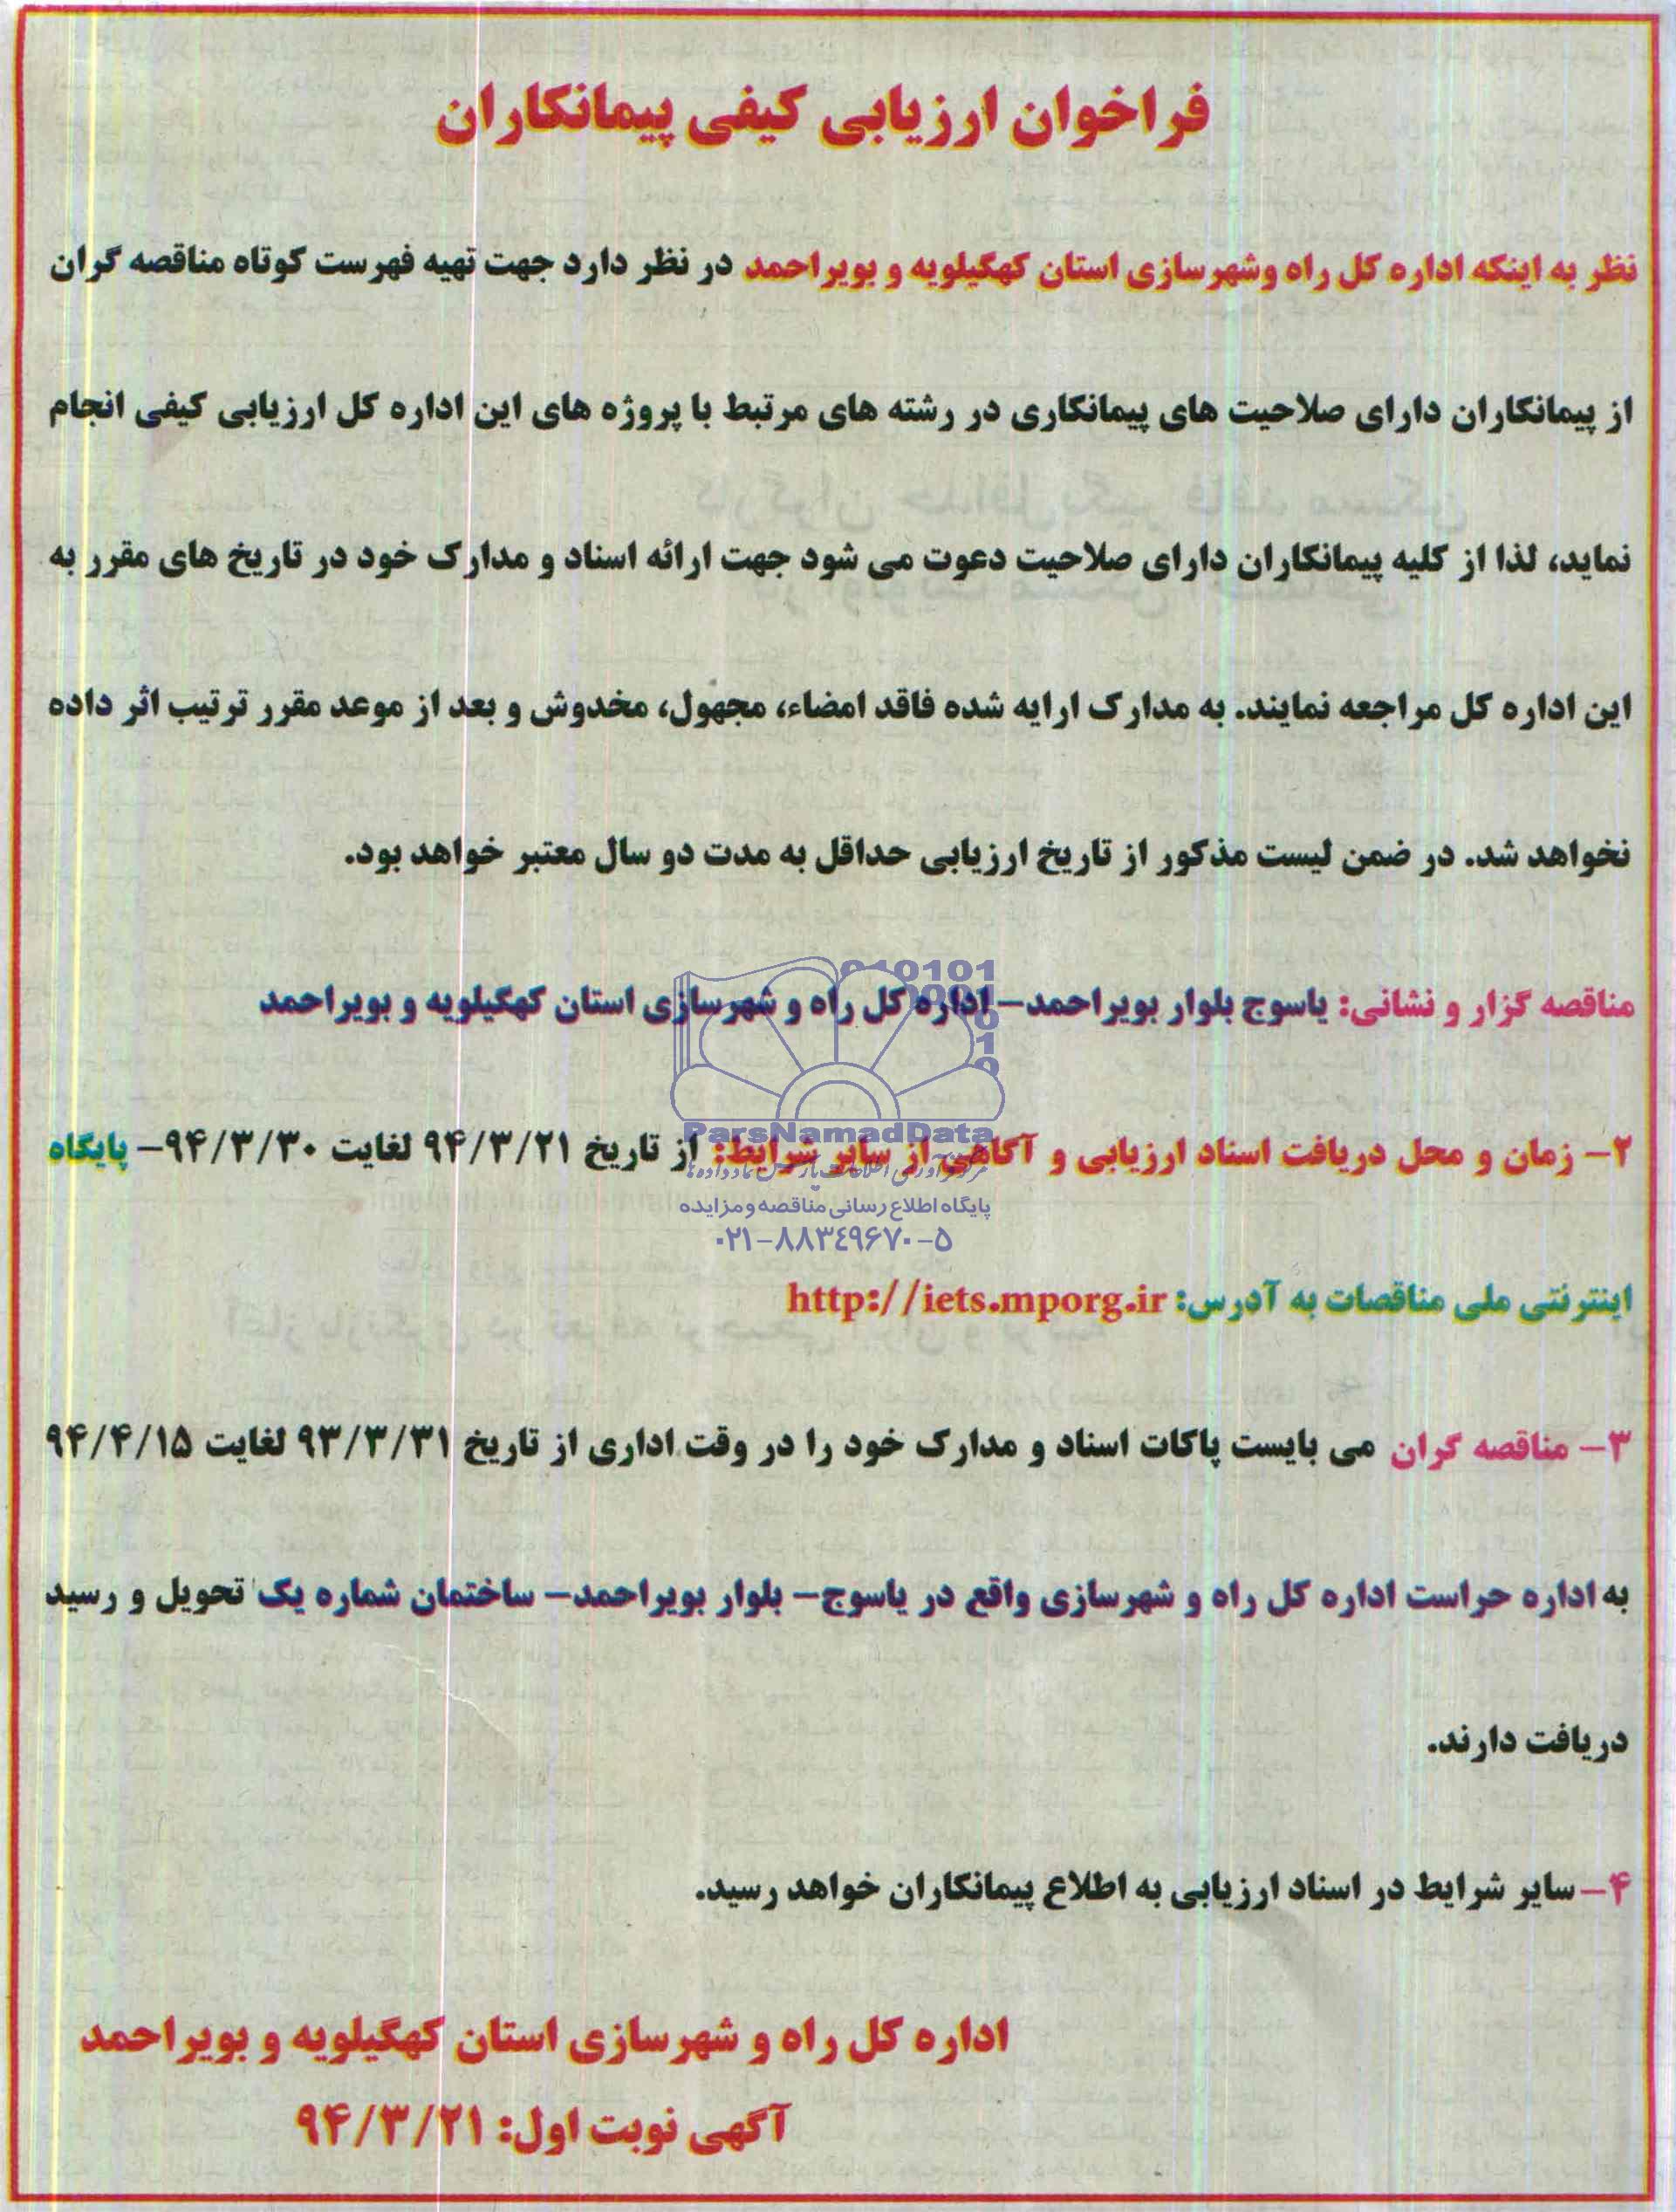 فراخوان ارزیابی کیفی پیمانکاران
نظر به اینکه اداره کل راه وشهرسازی استان کهگیلویه و بویراحمد در نظر دارد جهت تهیه فهرست کوتاه مناقصه گران
از پیمانکاران دارای صلاحیت های پیمانکاری در رشته های مرتبط با پروژه های این اداره کل ارزیابی کیفی انجام
نماید، لذا از کلیه پیمانکاران دارای صلاحیت دعوت می شود جهت ارائه اسناد و مدارک خود در تاریخ های مقرر به
این اداره کل مراجعه نمایند. به مدارک ارایه شده فاقد امضاء، مجهول، مخدوش و بعد از موعد مقرر ترتیب اثر داده
نخواهد شد. در ضمن لیست مذکور از تاریخ ارزیابی حداقل به مدت دو سال معتبر خواهد بود.
مناقصه گزار و نشانی: یاسوج بلوار بویراحمد– اداره کل راه و شهرسازی استان کهگیلویه و بویراحمد
ParsNamadData
۲– زمان و محل دریافت اسناد ارزیابی و آگاهی از سایر شرایط: از تاریخ ۹۴/۳/۲۱ لغایت ۹۴/۳/۳۰– پایگاه
مرکز فرآوری اطلاعات پارس نماد داده ها
پایگاه اطلاع رسانی مناقصه و مزایده
۰۲۱–۸۸۳۴۹۶۷۰–۵
اینترنتی ملی مناقصات به آدرس: http://iets.mporg.ir
۳– مناقصه گران می بایست پاکات اسناد و مدارک خود را در وقت اداری از تاریخ ۹۳/۳/۳۱ لغایت ۹۴/۴/۱۵
به اداره حراست اداره کل راه و شهرسازی واقع در یاسوج– بلوار بویراحمد– ساختمان شماره یک تحویل و رسید
دریافت دارند.
۴– سایر شرایط در اسناد ارزیابی به اطلاع پیمانکاران خواهد رسید.
اداره کل راه و شهرسازی استان کهگیلویه و بویراحمد
آگهی نوبت اول: ۹۴/۳/۲۱